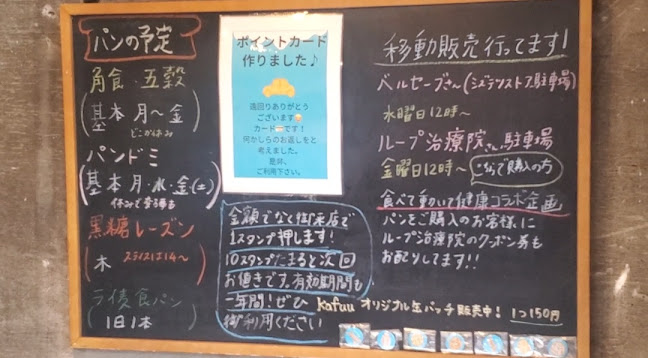 パンの予定
角食・五穀
(基本 月〜金)
パンドミ
(基本月・水・金(土))
休みで変る有る
黒糖レーズン
木 スライスは14〜
ライ麦食パン
1日1本
ポイントカード
作りました♪
遠回りありがとう
ございます
カード です!
何かしらのお返しをと
考えました。
是非、
ご利用下さい。
金額でなく御来店で
1スタンプ押します!
10スタンプたまると次回
お値きです。有効期間も
一年間!ぜひ
御利用ください
移動販売行ってます!
ベルセーブさん(シズテツストア駐車場)
水曜日12時〜
ループ治療院さん駐車場
金曜日12時〜
食べて動いて健康コラボ企画
パンをご購入のお客様に
ループ治療院のクーポン券も
お配りしてます!!
kafuu オリジナル缶バッチ販売中! 1つ150円